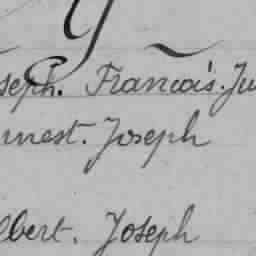 seph. Francois. Ju
rnest. Joseph
lbert. Joseph